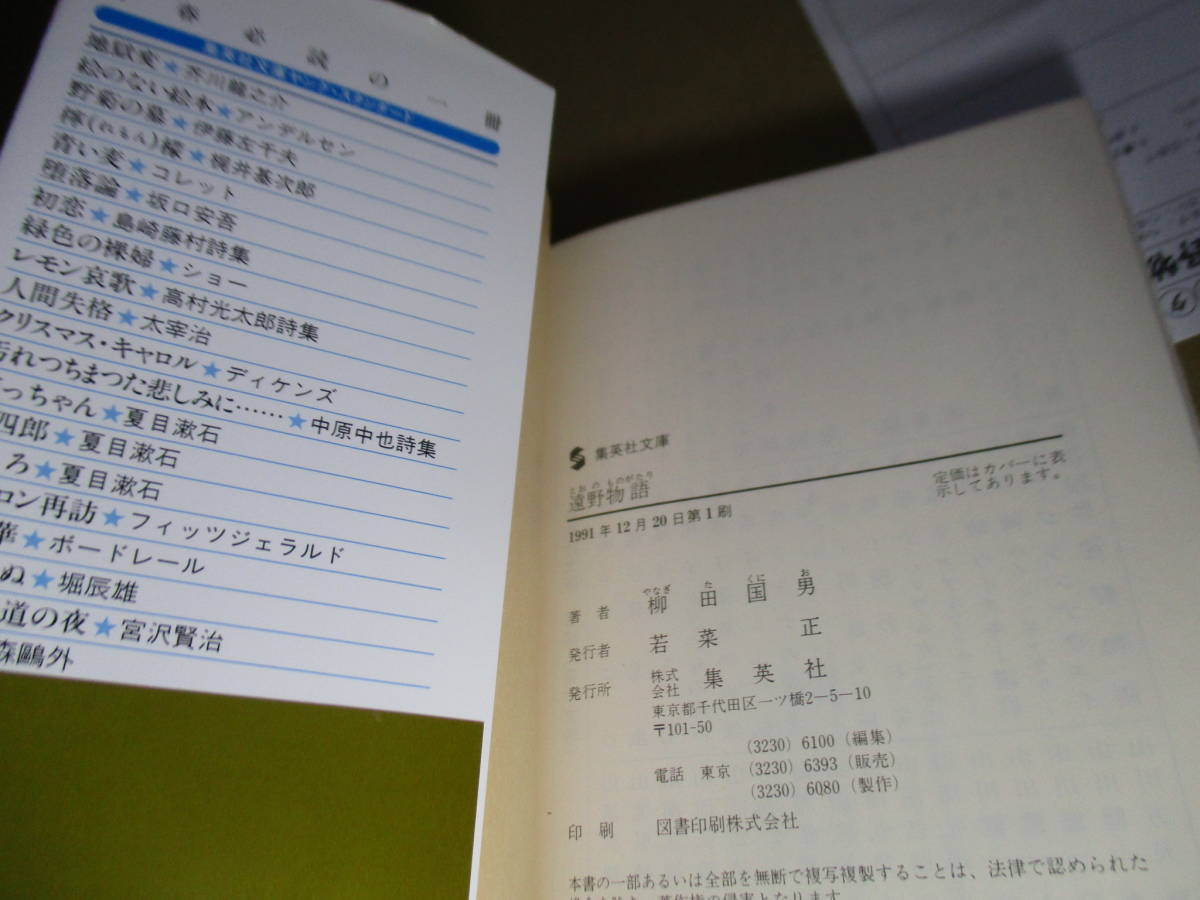 春必読の一冊
集英社文庫ヤング・スタンダード
地獄変★芥川龍之介
絵のない絵本★アンデルセン
野菊の墓★伊藤左千夫
檸(れもん)檬★梶井基次郎
青い麦★コレット
堕落論★坂口安吾
初恋★島崎藤村詩集
緑色の裸婦★ショー
レモン哀歌★高村光太郎詩集
人間失格★太宰治
クリスマス・キャロル★ディケンズ
汚れつちまつた悲しみに……★中原中也詩集
っちゃん★夏目漱石
四郎★夏目漱石
ろ★夏目漱石
ロン再訪★フィッツジェラルド
華★ボードレール
ぬ★堀辰雄
道の夜★宮沢賢治
森鷗外
集英社文庫
とおの ものがたり
遠野物語
定価はカバーに表
示してあります。
1991年12月20日第1刷
やなぎ た くに お
著者 柳田国男
発行者 若菜 正
発行所 株式会社 集英社
東京都千代田区一ツ橋2—5—10
〒101-50
(3230) 6100 (編集)
電話 東京 (3230) 6393 (販売)
(3230) 6080 (製作)
印刷 図書印刷株式会社
本書の一部あるいは全部を無断で複写複製することは、法律で認められた
著作権の侵害となります。